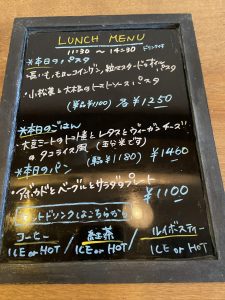 LUNCH MENU
11:30 〜 14:30 ドリンク付
*本日のパスタ
・長いもとモロッコインゲン、粒マスタードのオイルパスタ
・小松菜と大豆のトマトソースパスタ
各 ¥1250
*本日のごはん
・大豆ミートのトマト煮とレタスとヴィーガンチーズ
のタコライス風 (五分米です)
(税込¥1180) ¥1460
*本日のパン
・アボカドとベーグルとサラダのプレート
¥1100
ドリンクはこちらから
コーヒー / 紅茶 / ルイボスティー
ICE or HOT / ICE or HOT / ICE or HOT